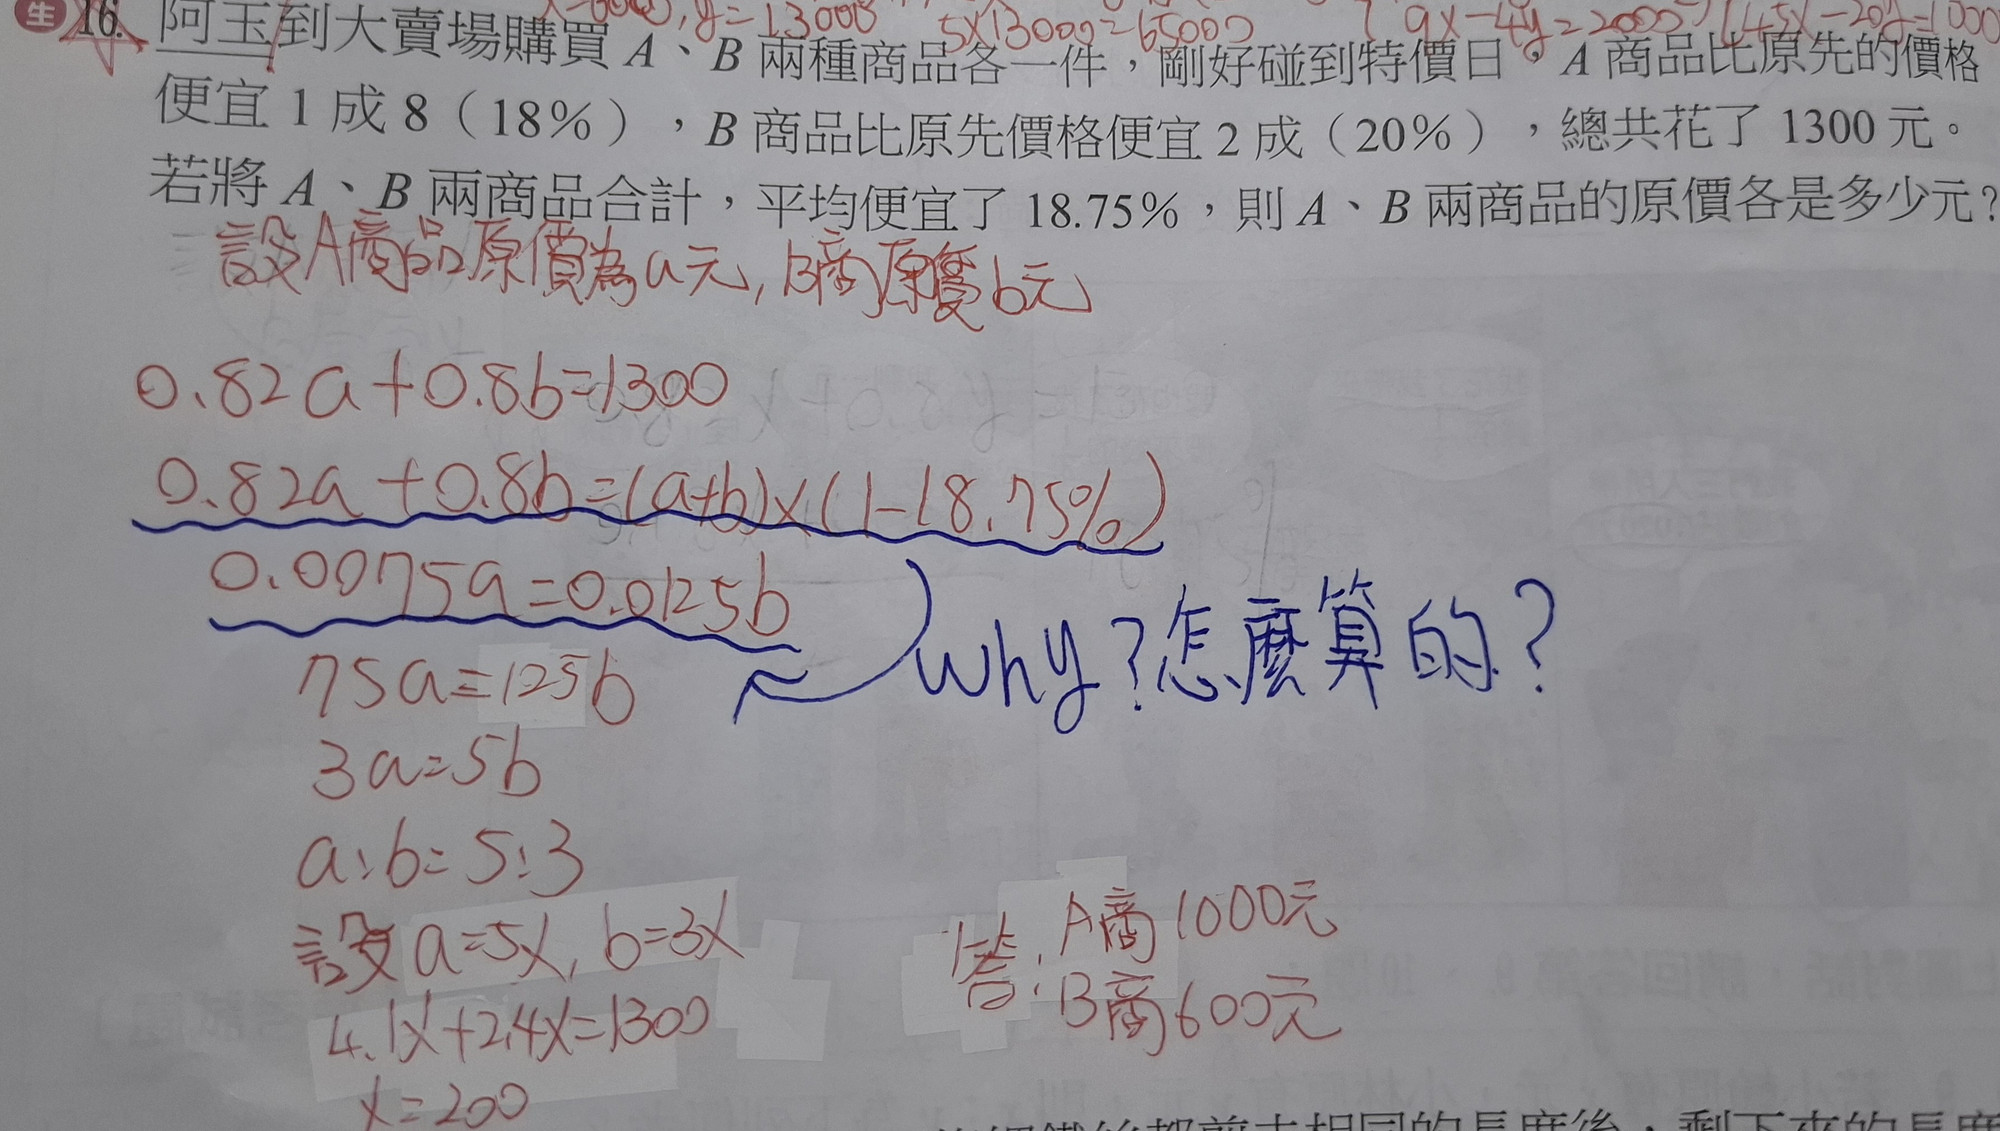 x=6000, y=13000
5x13000=65000
9x-4y=2000
45x-20y=1000
生 16. 阿玉到大賣場購買 A、B 兩種商品各一件,剛好碰到特價日。A 商品比原先的價格
便宜 1 成 8(18%),B 商品比原先價格便宜 2 成(20%),總共花了 1300 元。
若將 A、B 兩商品合計,平均便宜了 18.75%,則 A、B 兩商品的原價各是多少元?
設A商品原價為a元, B商原價b元
0.82a+0.8b=1300
0.82a+0.8b=(a+b)x(1-18.75%)
0.0075a=0.0125b
why?怎麼算的?
75a=125b
3a=5b
a:b=5:3
設a=5x, b=3x
4.1x+2.4x=1300
x=200
答: A商1000元
B商600元